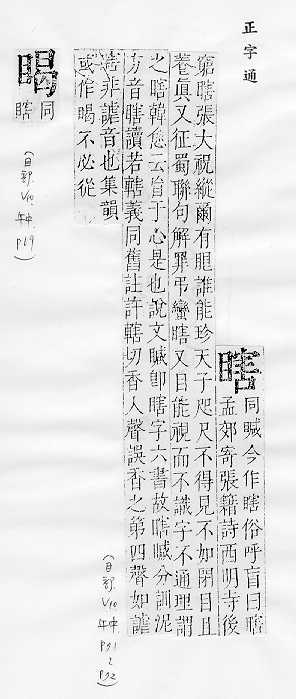 正字通
瞎
同䁍今作瞎俗呼盲曰瞎
孟郊寄張籍詩西明寺後
窮瞎張大視縱爾有眼誰能珍天子咫尺不得見不如閉目且
養眞又征蜀聯句解罪弔蠻瞎又目能視而不識字不通理謂
之瞎韓愈云盲于心是也說文䁍卽瞎字六書故瞎䁍分訓泥
方音瞎讀若轄義同舊註許轄切香入聲誤香之第四聲如謔
瞎非謔音也集韻
或作暍不必從
同
瞎